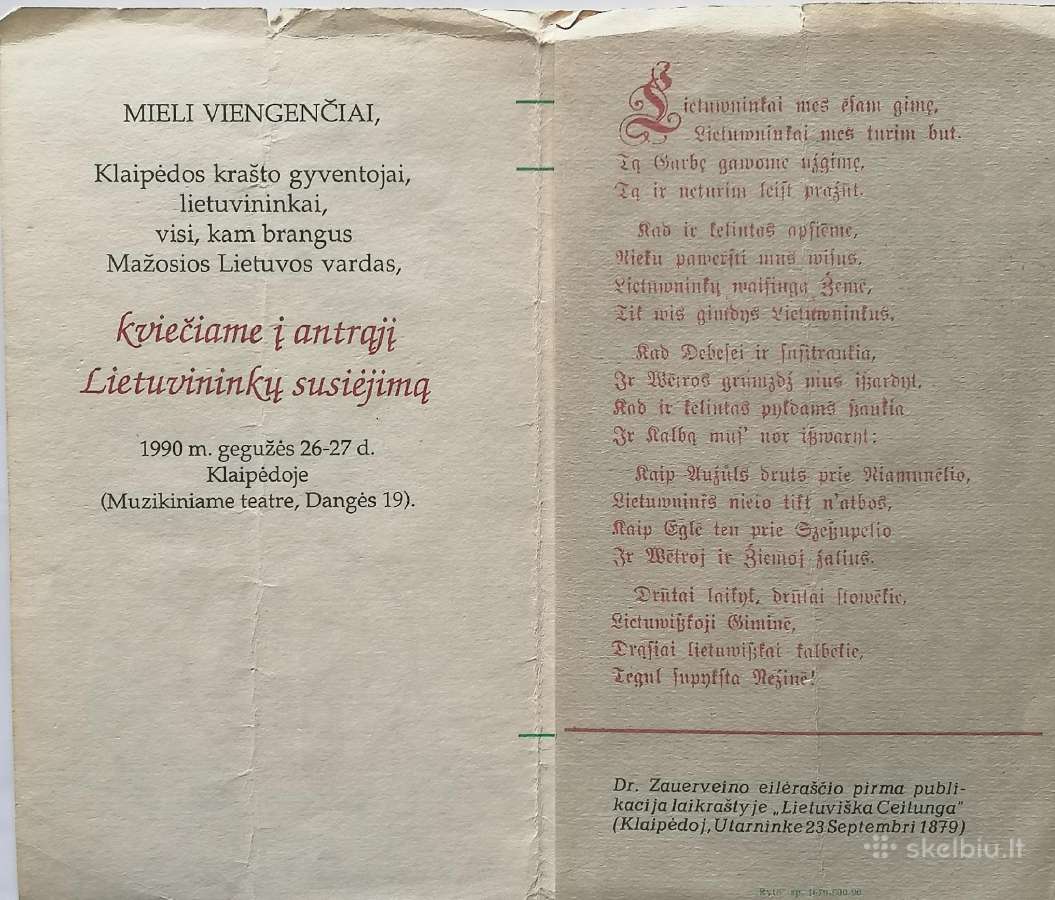 MIELI VIENGENČIAI,
Klaipėdos krašto gyventojai,
lietuvininkai,
visi, kam brangus
Mažosios Lietuvos vardas,
kviečiame į antrąjį
Lietuvininkų susiėjimą
1990 m. gegužės 26-27 d.
Klaipėdoje
(Muzikiniame teatre, Dangės 19).
Lietuwninkai mes ėsam gimę,
Lietuwninkai mes turim but.
Tą Garbę gawome užgimę,
Tą ir neturim leist pražut.
Kad ir kelintas apsiėme,
Nieku pawersti mus wisus,
Lietuwninkų waisinga Žemė,
Tik wis gimdys Lietuwninkus.
Kad Debesei ir susitraukia,
Ir Wėtros grumzdź mus ißardyt,
Kad ir kelintas pykdams ßaukia
Ir Kalbą mus' nor ißwaryt:
Kaip Aužůls druts prie Niamunėlio,
Lietuwninks nieko tikt n'atbos,
Kaip Eglė ten prie Szeßupelio
Ir Wėtroj ir Žiemoj žalius.
Drūtai laikyk, drūtai stowėkie,
Lietuwißkoji Giminė,
Drąsiai lietuwißkai kalbėkie,
Tegul supyksta Nežinė!
Dr. Zauerveino eilėraščio pirma publi-
kacija laikraštyje „Lietuviška Ceitunga"
(Klaipėdoj, Utarninke 23 Septembri 1879)
skelbiu.lt